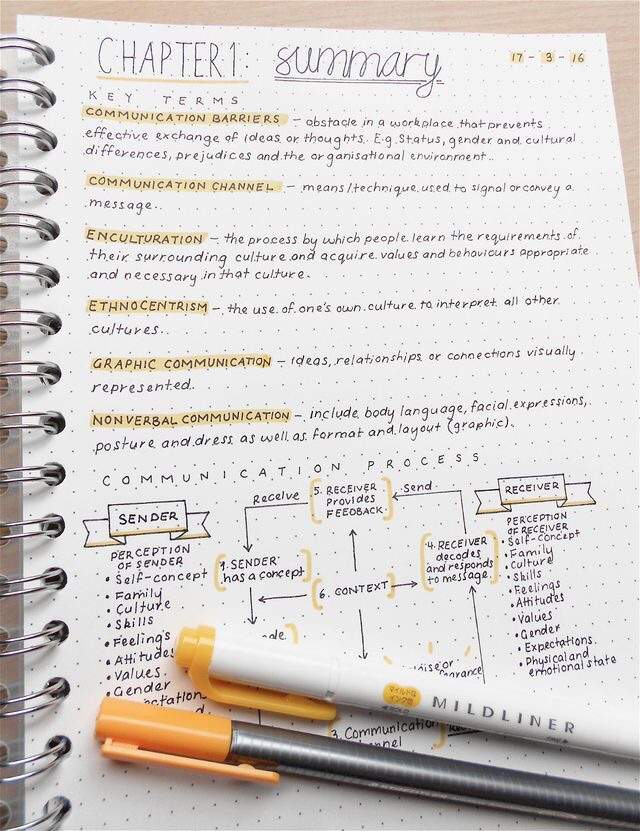 CHAPTER 1: summary
17 - 3 - 16
KEY TERMS
COMMUNICATION BARRIERS – obstacle in a workplace that prevents
effective exchange of ideas or thoughts. E.g. Status, gender and cultural
differences, prejudices and the organisational environment.
COMMUNICATION CHANNEL – means/technique used to signal or convey a
message.
ENCULTURATION – the process by which people learn the requirements of
their surrounding culture and acquire values and behaviours appropriate
and necessary in that culture.
ETHNOCENTRISM – the use of one's own culture to interpret all other
cultures.
GRAPHIC COMMUNICATION – Ideas, relationships or connections visually
represented.
NONVERBAL COMMUNICATION – include body language, facial expressions,
posture and dress as well as format and layout (graphic).
COMMUNICATION PROCESS
SENDER
PERCEPTION
OF SENDER
• Self-concept
• Family
• Culture
• Skills
• Feelings
• Attitudes
• Values
• Gender
Receive
5. RECEIVER
PROVIDES
FEEDBACK
Send
1. SENDER
has a concept
6. CONTEXT
4. RECEIVER
decodes
and responds
to message.
3. Communication
RECEIVER
PERCEPTION
OF RECEIVER
• Self-Concept
• Family
• Culture
• Skills
• Feelings
• Attitudes
• Values
• Gender
• Expectations
• Physical and
emotional state
マイルドな
インク色
MILDLINER